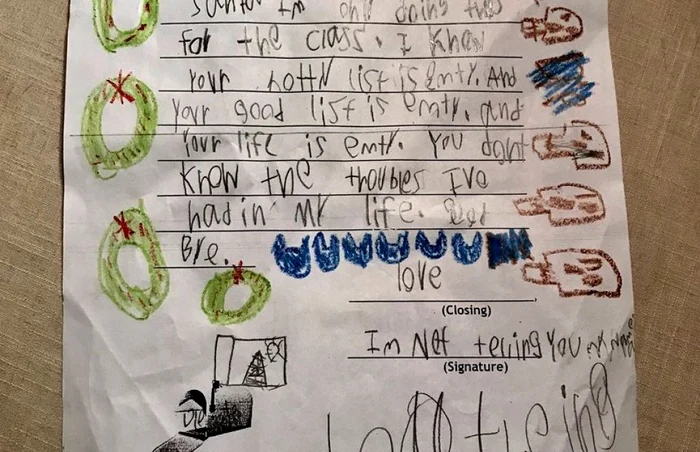 Santa Im only doing this
for the class. I Know
Your notty list is emty. And
Your good list is emty. and
Your life is emty. You dont
Know the troubles Ive
had in my life. Good
Bye.
love
(Closing)
Im Not teling You my name
(Signature)